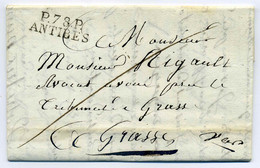 P.78.P.
ANTIBES
Monsieur
Monsieur Rigault
Avocat avoué près le
Tribunal à Grasse
Grasse
Var